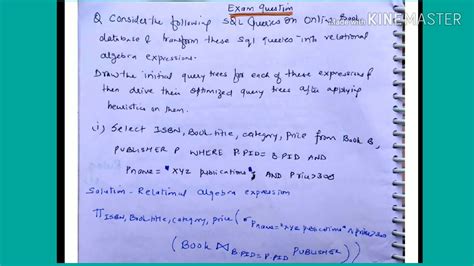 Exam Question
KINEMASTER
Q Consider the following SQL Queries on Online Book
database & transform these sql queries into relational
algebra expressions.
Draw the initial query trees for each of these expressions &
then derive their optimized query trees after applying
heuristics on them.
i) Select ISBN, Book-title, category, Price from Book B,
PUBLISHER P WHERE P.PID = B.PID AND
Pname = "XYZ publications", AND Price > 300
Solution - Relational algebra expression
π ISBN, Book-title, category, price ( σ Pname = "XYZ publications" ∧ price > 300
( Book ⋈ B.PID = P.PID PUBLISHER ))